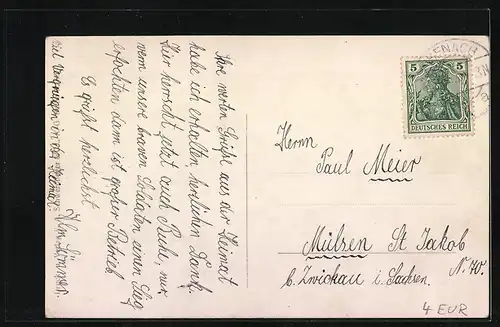 Ihre werten Grüße aus der Heimat
habe ich erhalten herzlichen Dank.
Hier herrscht jetzt auch Ruhe, nur
wenn unsere braven Soldaten einen Sieg
erfochten dann ist großer Betrieb
Es grüßt herzlichst
viel Vergnügen in der Heimat.
ENACH
5 5
DEUTSCHES REICH
Herrn
Paul Meier
Mülsen St. Jakob
b. Zwickau i. Sachsen.
N. 70.
4 EUR